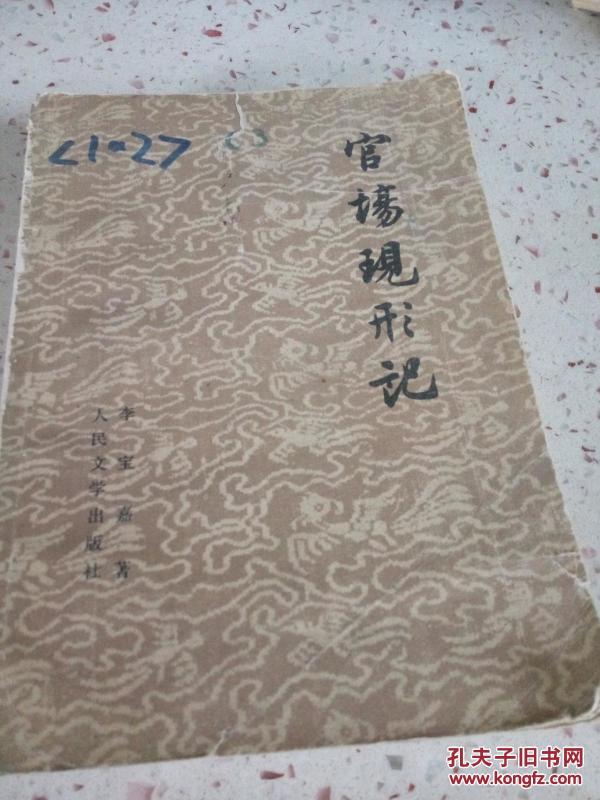 <1027
官場現形記
李宝嘉 著
人民文学出版社
孔夫子旧书网
www.kongfz.com